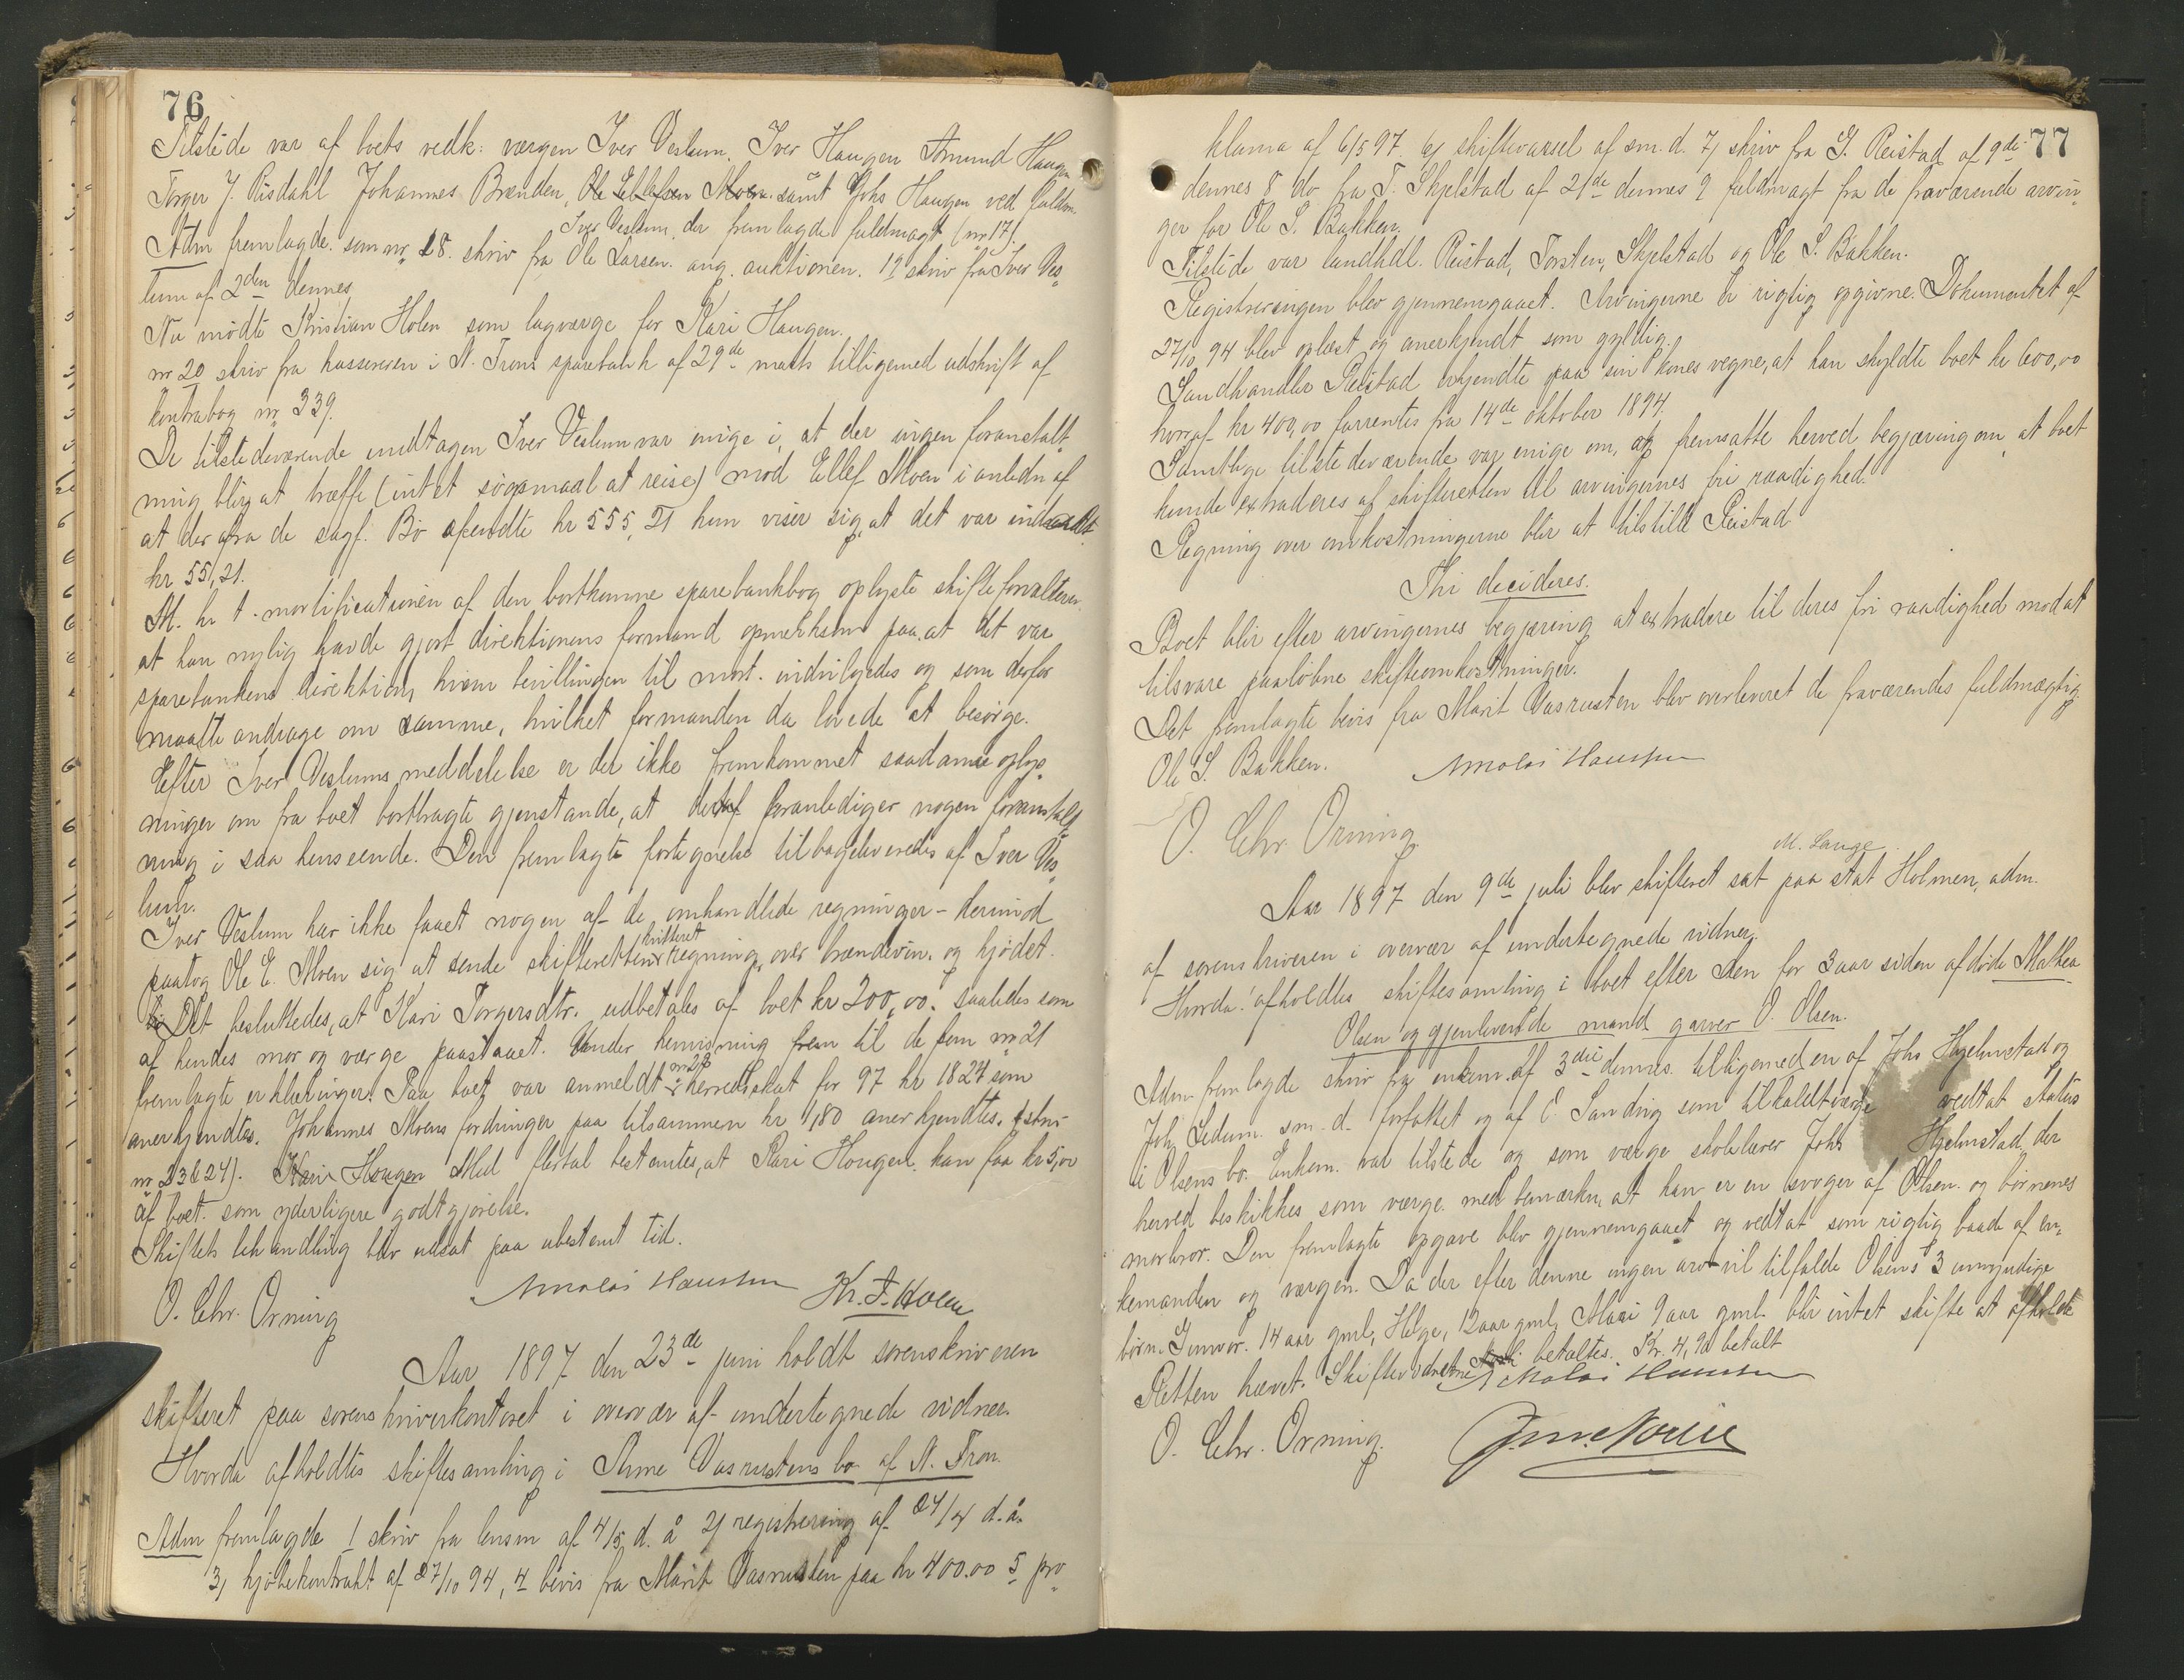 76
Tilstede var af boets vedk: værgen Iver Veslum, Iver Haugen Amund Haugen
Torger J. Risdahl Johannes Brenden, Ole Ellefsen Moen samt Johs Haugen ved fuldm.
Iver Veslum, der fremlagde fuldmagt (nr 17).
Adm fremlagde som nr 18. skriv fra Ole Larsen. ang. auktionen. 19 skriv fra Iver Ves-
lum af 2den dennes
Nu mødte Kristian Holen som lagværge for Kari Haugen.
nr 20 skriv fra kassereren i N. Frons sparebank af 29de marts tilligemed udskrift af
kontrabog nr 339.
De tilstedeværende undtagen Iver Veslum var enige i, at der ingen foranstalt-
ning blir at træffe (intet søgsmaal at reise) mod Ellef Moen i anledn af
at der fra de sagf. Bø opsendte kr 555,21 kun viser sig, at det var indsendt
kr 55,21.
M. h. t. mortificationen af den bortkomne sparebankbog oplyste skifteforvalteren
at han nylig havde gjort direktionens formand opmerksom paa, at det var
sparebankens direktion, hvem bevillingen til mort. indvilgedes og som derfor
maatte andrage om samme, hvilket formanden da lovede at besørge.
Efter Iver Veslums meddelelse er der ikke fremkommet saadanne oplys-
ninger om fra boet bortbragte gjenstande, at deraf foranlediger nogen foranstalt-
ning i saa henseende. Den fremlagte fortegnelse tilbageleveredes af Iver Ves-
lum.
Iver Veslum har ikke faaet nogen af de omhandlede regninger - derimod
paatog Ole E. Moen sig at sende skifteretten kvitteret regning over brændevin og kjødet.
Det besluttedes, at Kari Torgersdtr. udbetales af boet kr 200,00. saaledes som
af hendes mor og værge paastaaet. Under henvisning frem til de som nr 21
fremlagte erklæringer. Paa boet var anmeldt nr 22 herredsskat for 97 kr 18 24 som
anerkjendtes. Johannes Moens fordringer paa tilsammen kr 1,80 anerkjendtes. (skriv
nr 23 & 24). Kari Haugen Med flertal bestemtes, at Kari Haugen kan faa kr 5,00
af boet som yderligere godtgjørelse.
Skiftets behandling blev udsat paa ubestemt tid.
O. Chr. Orning
Nikolai Hanssen Kr. F. Holen
Aar 1897 den 23de juni holdt sorenskriveren
skifteret paa sorenskriverkontoret i overvær af undertegnede vidner.
Hvorda afholdtes skiftesamling i Anne Vasrustens bo af N. Fron.
Adm fremlagde 1 skriv fra lensm af 4/5 d. å 2) registrering af 24/4 d. å.
3, kjøbekontrakt af 27/10 94, 4 bevis fra Marit Vasrusten paa kr 400.00 5 pro-
77
klama af 6/5 97. 6) skiftevarsel af sm. d. 7) skriv fra G. Reistad af 9de
dennes 8 do fra T. Skjelstad af 21de dennes 9 fuldmagt fra de fraværende arvin-
ger for Ole S. Bakken.
Tilstede var landhdl. Reistad, Torsten, Skjelstad og Ole S. Bakken.
Registreringen blev gjennemgaaet. Arvingerne er rigtig opgivne. Dokumentet af
27/10 94 blev oplæst og anerkjendt som gyldig.
Landhandler Reistad erkjendte paa sin kones vegne, at han skyldte boet kr 600,00
hvoraf kr 400,00 forrentes fra 14de oktober 1894.
Samtlige tilstedeværende var enige om, og fremsatte herved begjæring om, at boet
kunde extraderes af skifteretten til arvingernes fri raadighed.
Regning over omkostningerne blir at tilstille Reistad
Thi decideres.
Boet blir efter arvingernes begjæring at extradere til deres fri raadighed mod at
tilsvare paaløbne skifteomkostninger.
Det fremlagte bevis fra Marit Vasrusten blev overleveret de fraværendes fuldmægtig
Ole S. Bakken.
Nikolai Hanssen
O. Chr. Orning
M. Lange
Aar 1897 den 9de juli blev skifteret sat paa stat Holmen, adm.
af sorenskriveren i overvær af undertegnede vidner.
Hvorda! afholdtes skiftesamling i boet efter den for 3 aar siden afdøde Mathea
Olsen og gjenlevende mand garver O. Olsen.
Adm fremlagde skriv fra enkem. af 3die dennes tilligemed en af Johs Hjelmstad og
Joh Sedum sm. d. forfattet og af E. Sanding som tilkaldt værge vedtat status
i Olsens bo. Enkem. var tilstede og som værge skolelærer Johs Hjelmstad, der
herved beskikkes som værge med bemærkn, at han er en svoger af Olsen og børnenes
morbror. Den fremlagte opgave blev gjennemgaaet og vedtat som rigtig baade af en-
kemanden og værgen. Da der efter denne ingen arv vil tilfalde Olsens 3 umyndige
børn. Gunvor. 14 aar gml, Helge, 12 aar gml, Mari 9 aar gml. blir intet skifte at afholde
Retten hævet. Skiftevidnerne betaltes. Kr. 4,90 betalt
Nikolai Hanssen
O. Chr. Orning.